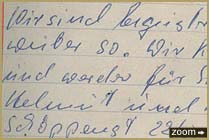 Wir sind begeistr
weiter so. Wir k
und werde für S
Helmut und
zoom